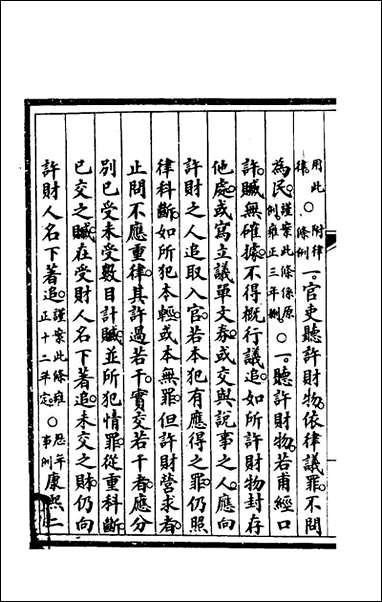 用此律。○附律條例一。官吏聽許財物。依律議罪。不問
為民。謹案此條係原例雍正三年刪○一。聽許財物。若甫經口
許。贓無確據。不得概行議追。如所許財物封存
他處。或寫立議單文券。或交與說事之人。應向
許財之人追取入官。若本犯有應得之罪。仍照
律科斷。如所犯本輕。或本無罪。但許財營求者。
止問不應重律。其許過若干。實交若干者。應分
別已受未受數目計贓。並所犯情罪。從重科斷。
已交之贓。在受財人名下著追。未交之財。仍向
許財人名下著追。謹案此條雍正十二年定○歷年事例康熙二